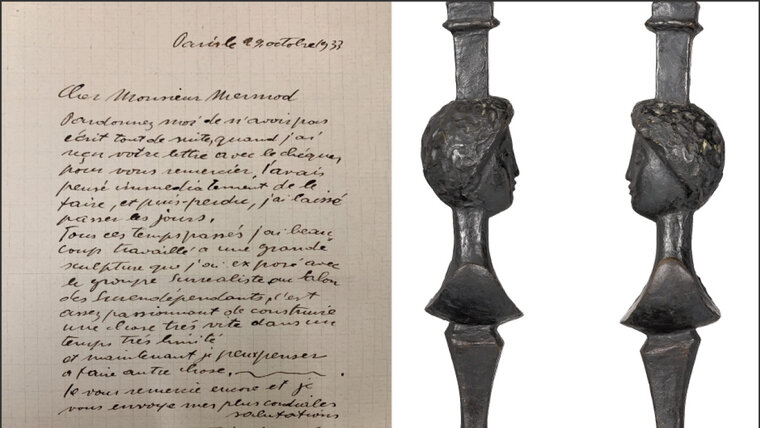 Paris le 29. octobre 1933
Cher Monsieur Mermod
Pardonnez moi de n'avoir pas
écrit tout de suite, quand j'ai
reçu votre lettre avec le chèque,
pour vous remercier, l'avais
pensé immédiatement de le
faire, et puis perdu, j'ai laissé
passer les jours.
Tous ces temps passés j'ai beau
coup travaillé a une grande
sculpture que j'ai exposé avec
le groupe surrealiste au salon
des Surendépendants, c'est
assez passionnant de construire
une chose très vite dans un
temps très limité
et maintenant je peux penser
a faire autre chose.
Je vous remercie encore et je
vous envoye mes plus cordiales
salutations